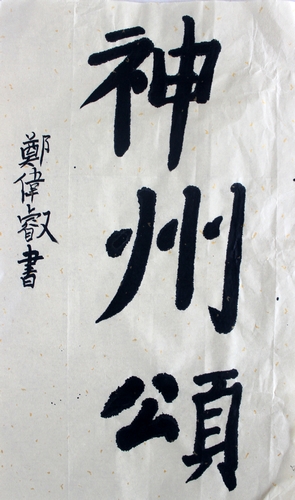 神州頌
鄭偉睿書